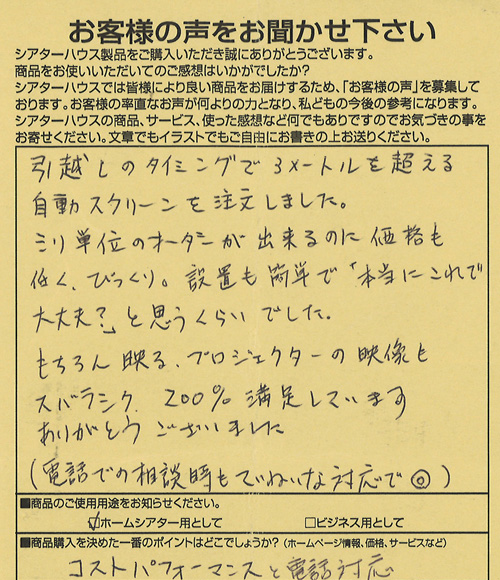 お客様の声をお聞かせ下さい
シアターハウス製品をご購入いただき誠にありがとうございます。
商品をお使いいただいてのご感想はいかがでしたか?
シアターハウスでは皆様により良い商品をお届けするため、「お客様の声」を募集して
おります。お客様の率直なお声が何よりの力となり、私どもの今後の参考になります。
シアターハウスの商品、サービス、使った感想など何でもありですのでお気づきの事を
お寄せください。文章でもイラストでもご自由にお書きの上お送りください。
引越しのタイミングで3メートルを超える
自動スクリーンを注文しました。
ミリ単位のオーダーが出来るのに価格も
低く、びっくり。設置も簡単で「本当にこれで
大丈夫?」と思うくらいでした。
もちろん映る、プロジェクターの映像も
スバラシク、200%満足しています
ありがとうございました
(電話での相談時もていねいな対応で◎)
■商品のご使用用途をお知らせください。
☑ホームシアター用として □ビジネス用として
■商品購入を決めた一番のポイントはどこでしょうか?(ホームページ情報、価格、サービスなど)
コストパフォーマンスと電話対応